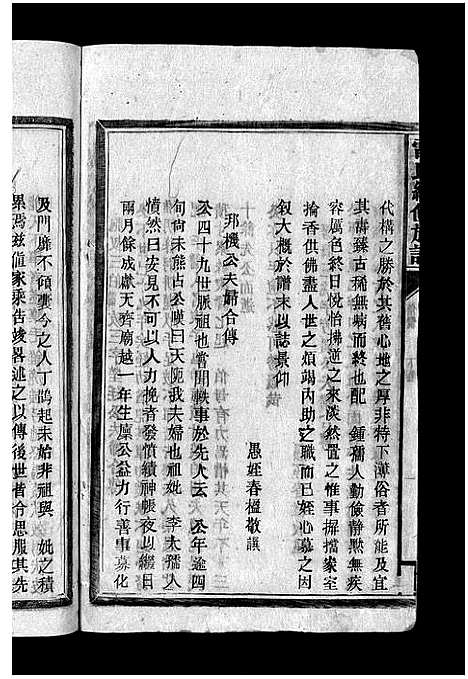 代構之勝於其舊心地之厚非特下漳俗者所能及宜
其壽臻古稀無病而終也配 鍾孺人勤儉靜默無疾
容厲色終日悅怡拂逆之來淡然置之惟事摒擋家室
掄香供佛盡人世之煩竭內助之職而已姪心慕之因
敍大概於譜末以誌景仰
愚姪春楹敬譔
邦機公夫婦合傳
公四十九世脈祖也嘗聞軼事於先人云 公年逾四
旬尚未熊占公嘆曰天阨我夫婦也祖妣 李太孺人
憤然曰安見不可以人力挽者發憤績神帳夜以繼日
兩月餘成獻天齊廟越一年生廩公益力行善事募化
及門牆不傾業今之人丁鵲起未始非祖與 妣之積
累焉茲值家乘告竣畧述之以傳後世俾令思服其先